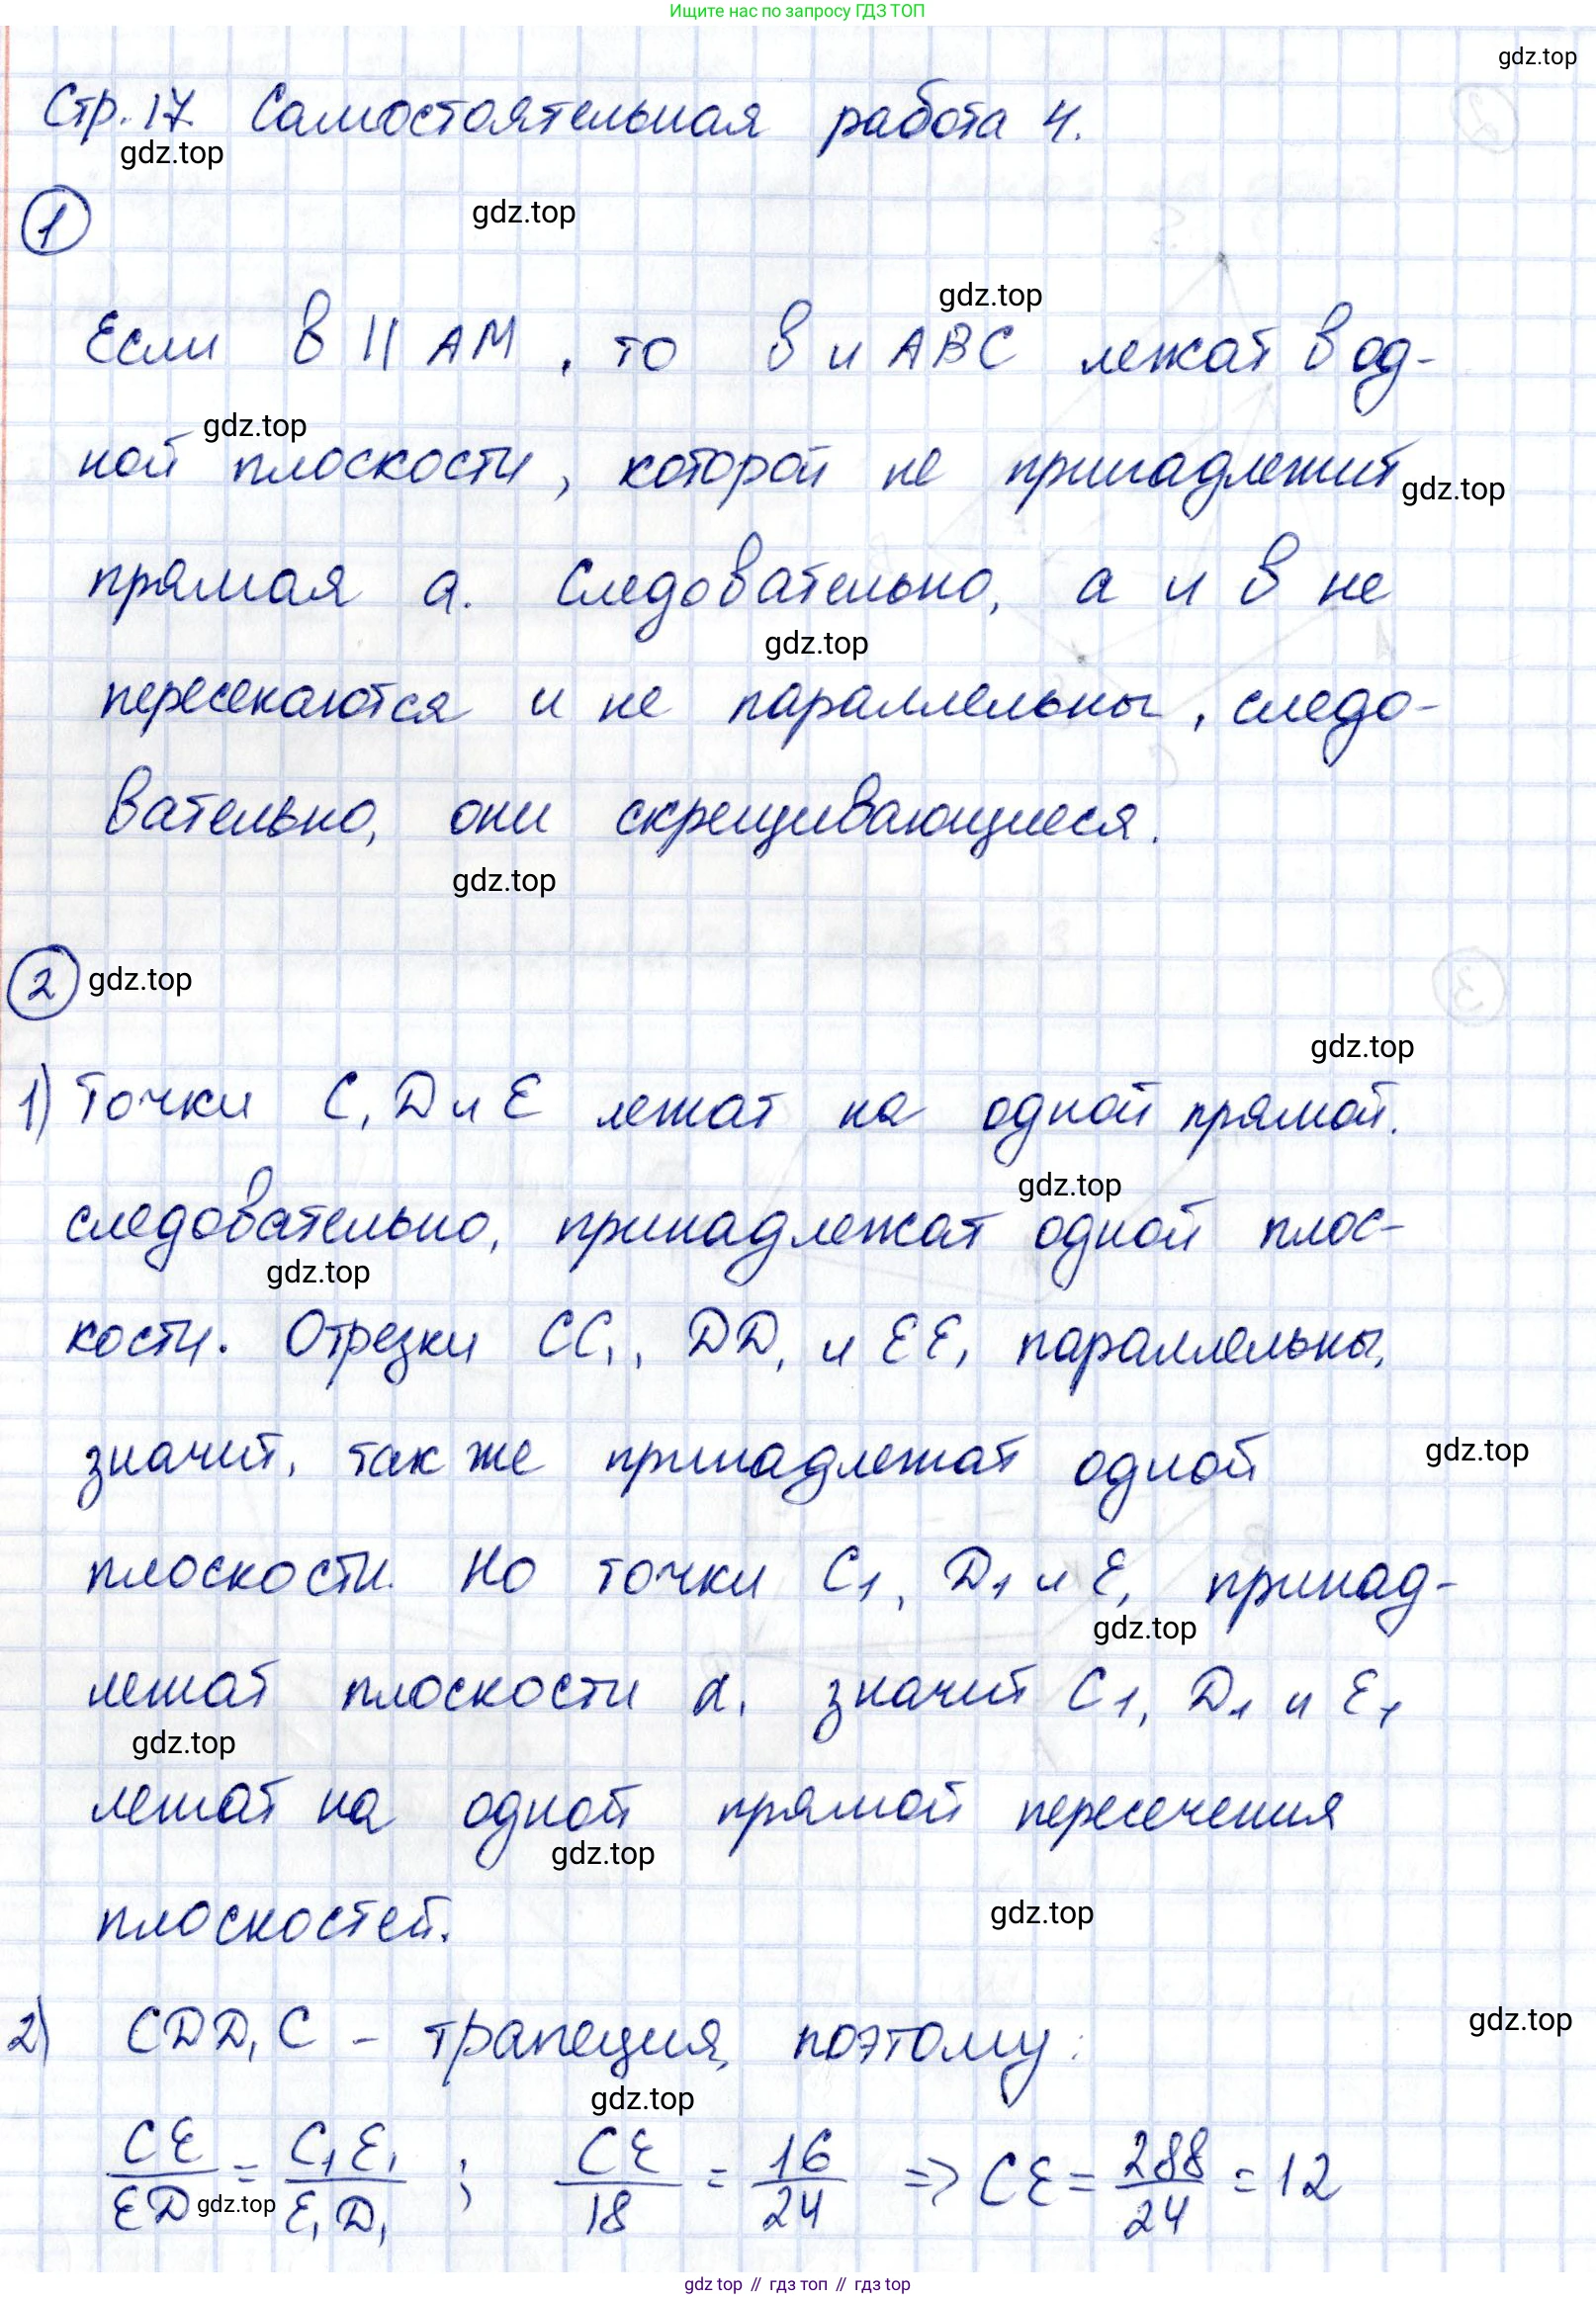 Ищите нас по запросу ГДЗ ТОП
gdz.top
Стр. 17. Самостоятельная работа 4.
gdz.top
1
gdz.top
gdz.top
Если в || АМ, то в и АВС лежат в од-
gdz.top
ной плоскости, которой не принадлежит
gdz.top
прямая а. Следовательно, а и в не
gdz.top
пересекаются и не параллельны, следо-
вательно, они скрещивающиеся.
gdz.top
2 gdz.top
gdz.top
1) Точки С, D и Е лежат на одной прямой.
gdz.top
следовательно, принадлежат одной плос-
gdz.top
кости. Отрезки СС₁, DD₁ и ЕЕ₁ параллельны,
значит, так же принадлежат одной
gdz.top
плоскости. Но точки С₁, D₁ и Е₁ принад-
gdz.top
лежат плоскости α, значит С₁, D₁ и Е₁
gdz.top
лежат на одной прямой пересечения
gdz.top
плоскостей.
gdz.top
2) CDD₁C - трапеция, поэтому:
gdz.top
gdz.top
CE/ED = C₁E₁/E₁D₁ ; CE/18 = 16/24 => CE = 288/24 = 12
gdz.top
gdz top // гдз топ // гдз top